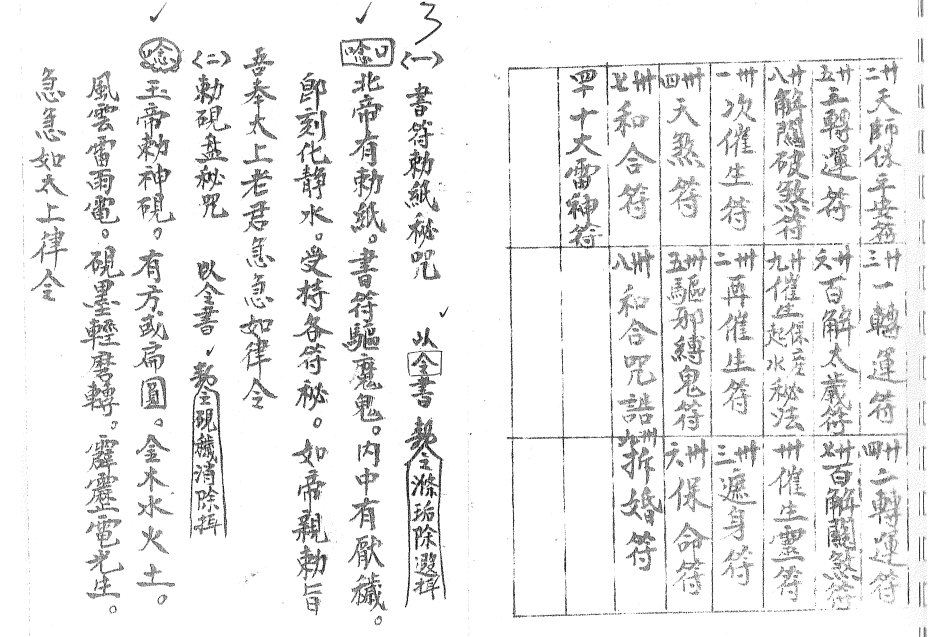 廿二 天師保平安符
廿三 一轉運符
廿四 二轉運符
廿五 五轉運符
廿六 百解太歲符
廿七 百解關煞符
廿八 解關破煞符
廿九 催生保產起水秘法
卅 催生靈符
卅一 次催生符
卅二 再催生符
卅三 遮身符
卅四 天煞符
卅五 驅邪縛鬼符
卅六 保命符
卅七 和合符
卅八 和合咒語
卅九 拆婚符
四十 十大雷神符
(一) 書符勅紙秘咒 以令書 勅令滌垢除
口唸 北帝有勅紙。書符驅魔鬼。內中有厭穢。
即刻化静水。受持各符秘。如帝親勅旨
吾奉太上老君急急如律令
(二) 勅硯盘秘咒 以令書 勅令硯穢消除
唸 玉帝勅神硯。有方或扁圓。金木水火土。
風雲雷雨電。硯墨輕磨轉。霹靂電光生。
急急如太上律令